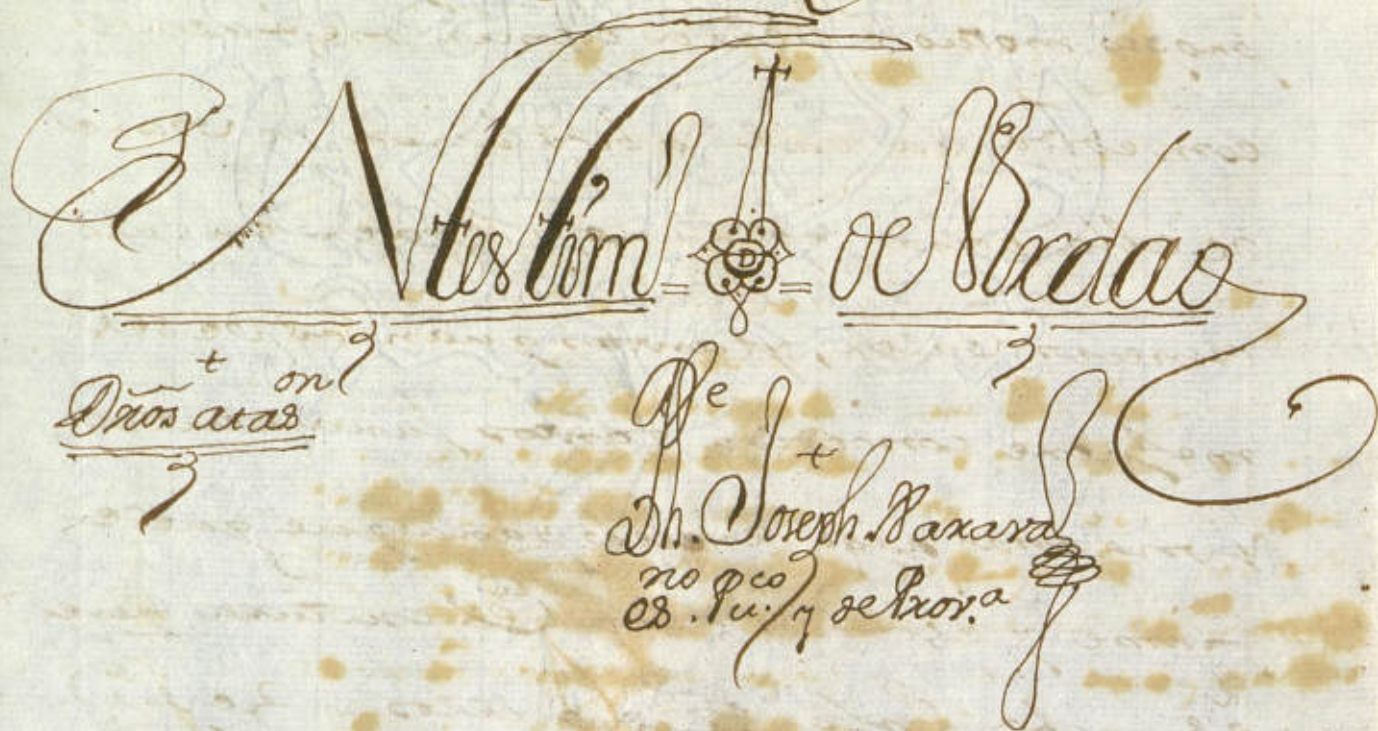 En testim.o de Verdad
Dros a tas.on
D.n Joseph Naxava
es.no pu.co y de Prov.a